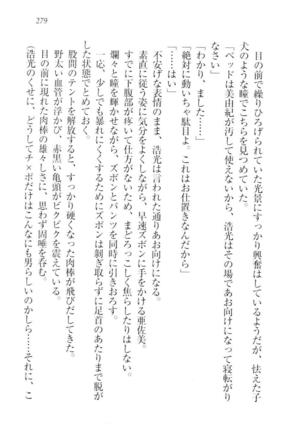 279
目の前で繰りひろげられていた光景にすっかり興奮はしているようだが、怯えた子
犬のような瞳でこちらを見つめていた。
「ベッドは美由紀が汚して使えないから、浩光はその場であお向けになって寝転がり
なさい」
「わかり、ました……」
「絶対に動いちゃ駄目よ。これはお仕置きなんだから」
「……はい」
不安げな表情のまま、浩光は言われた通りあお向けになる。
素直に従う姿に気分をよくしながら、早速ズボンに手をかける亜佐美。
すでに下腹部が疼いて仕方がないため、まどろっこしく焦らしたりはしない。
爛々と瞳を輝かせながら、ズボンとパンツを同時に引きおろす。
一応、少しでも暴れにくくするために、ズボンは剥ぎ取らずに足首のあたりまで脱が
した状態でとめておく。
股間のテントを解放すると、すっかり硬くなった肉棒が飛びだしてくる。
野太い血管が浮かび、赤黒い亀頭がビクビクと震えている。
目の前に現れた肉棒の雄々しさに、思わず固唾を呑む。
（浩光のくせに、どうしてチ×ポだけはこんなにも男らしいのかしら……それに、こ